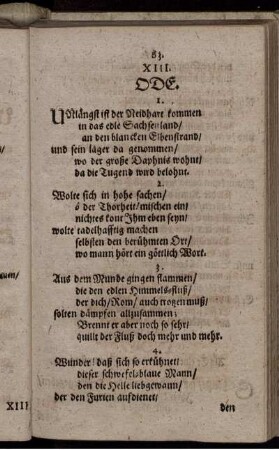 83.
XIII.
ODE.
1.
UNlängst ist der Neidhart kommen
in das edle Sachsenland/
an den blancken Elbenstrand/
und sein läger da genommen/
wo der große Daphnis wohnt/
da die Tugend wird belohnt.
2.
Wolte sich in hohe sachen/
ô der Thorheit/mischen ein/
nichtes kont Jhm eben seyn/
wolte tadelhafftig machen
selbsten den berühmten Ort/
wo mann hört ein göttlich Wort.
3.
Aus dem Munde gingen flammen/
die den edlen Himmels-fluß/
der dich/Rom/auch trogen muß/
solten dämpfen allzusammen;
Brennt er aber noch so sehr/
quillt der Fluß doch mehr und mehr.
4.
Wunder/daß sich so erkühnet/
dieser schwefelblaue Mann/
den die Helle liebgewann/
der den Furien aufdienet/
den
XIII